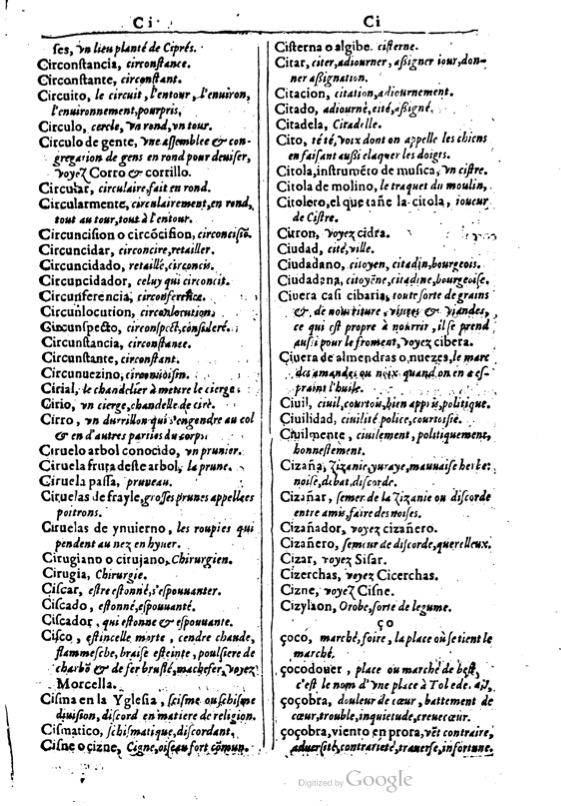 Ci
Ci
ses, vn lieu planté de Ciprés.
Circonstancia, circonstance.
Circonstante, circonstant.
Circuito, le circuit, l'entour, l'enuiron,
l'enuironnement, pourpris,
Circulo, cercle, vn rond, vn tour.
Circulo de gente, vne assemblee & con-
gregation de gens en rond pour deuiser,
voyez Corro & corrillo.
Circular, circulaire, fait en rond.
Circularmente, circulairement, en rond,
tout au tour, tout à l'entour.
Circuncision o circōcision, circoncisiō.
Circuncidar, circoncire, retailler.
Circuncidado, retaillé, circoncis.
Circuncidador, celuy qui circoncit.
Circunferencia, circonference.
Circunlocution, circonlocution.
Circunspecto, circonspect, consideré.
Circunstancia, circonstance.
Circunstante, circonstant.
Circunuezino, circonuoisin.
Cirial, le chandelier à mettre le cierge.
Cirio, vn cierge, chandelle de cire.
Cirro, vn durrillon qui s'engendre au col
& en d'autres parties du corps.
Ciruelo arbol conocido, vn prunier.
Ciruela fruta deste arbol, la prune.
Ciruela passa, pruneau.
Ciruelas de frayle, grosses prunes appellees
poitrons.
Ciruelas de ynuierno, les roupies qui
pendent au nez en hyuer.
Cirugiano o cirujano, Chirurgien.
Cirugia, Chirurgie.
Ciscar, estre estonné, s'espouuanter.
Ciscado, estonné, espouuanté.
Ciscador, qui estonne & espouuante.
Cisco, estincelle morte, cendre chaude,
flammesche, braise esteinte, poulsiere de
charbō & de fer bruslé, machefer, voyez
Morcella.
Cisma en la Yglesia, scisme ou schisme
diuision, discord en matiere de religion.
Cismatico, schismatique, discordant.
Cisne o çizne, Cigne, oiseau fort cōmun.
Cisterna o algibe. cisterne.
Citar, citer, adiourner, assigner iour, don-
ner assignation.
Citacion, citation, adiournement.
Citado, adiourné, cité, assigné.
Citadela, Citadelle.
Cito, té té, voix dont on appelle les chiens
en faisant aussi claquer les doigts.
Citola, instrumēto de musica, vn cistre.
Citola de molino, le traquet du moulin,
Citolero, el que tañe la citola, ioueur
de Cistre.
Citron, voyez cidra.
Ciudad, cité, ville.
Ciudadano, citoyen, citadin, bourgeois.
Ciudadana, citoyēne, citadine, bourgeoise.
Ciuera casi cibaria, toute sorte de grains
& de nourriture, viures & viandes,
ce qui est propre à nourrir, il se prend
aussi pour le froment, voyez cibera.
Ciuera de almendras o nuezes, le marc
des amandes ou noix quand on en a es-
praint l'huile.
Ciuil, ciuil, courtou, bien appris, politique.
Ciuilidad, ciuilité police, courtoisie.
Ciuilmente, ciuilement, politiquement,
honnestement.
Cizaña, Zizanie, yuraye, mauuaise herbe:
noise, debat, discorde.
Cizañar, semer de la Zizanie ou discorde
entre amis, faire des noises.
Cizañador, voyez cizañero.
Cizañero, semeur de discorde, querelleux.
Cizar, voyez Sisar.
Cizerchas, voyez Cicerchas.
Cizne, voyez Cisne.
Cizylaon, Orobe, sorte de legume.
ço
çoco, marché, foire, la place où se tient le
marché.
çocodouer, place ou marché de
c'est le nom d'vne place à Tolede.
çoçobra, douleur de cœur, battement de
cœur, trouble, inquietude, creuecœur.
çoçobra, viento en prora, vēt contraire,
aduersité, contrarieté, trauerse, infortune.
Digitized by Google